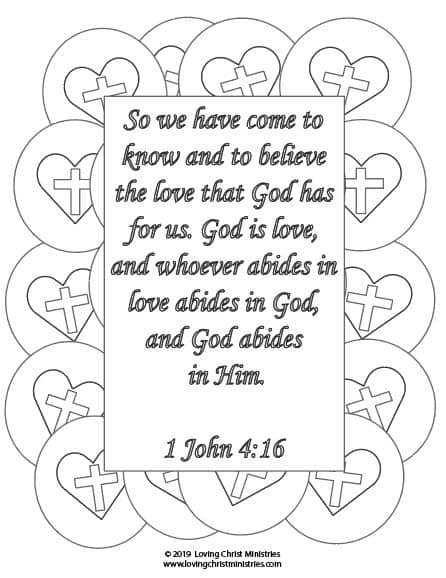 So we have come to
know and to believe
the love that God has
for us. God is love,
and whoever abides in
love abides in God,
and God abides
in Him.
1 John 4:16
© 2019 Loving Christ Ministries
www.lovingchristministries.com